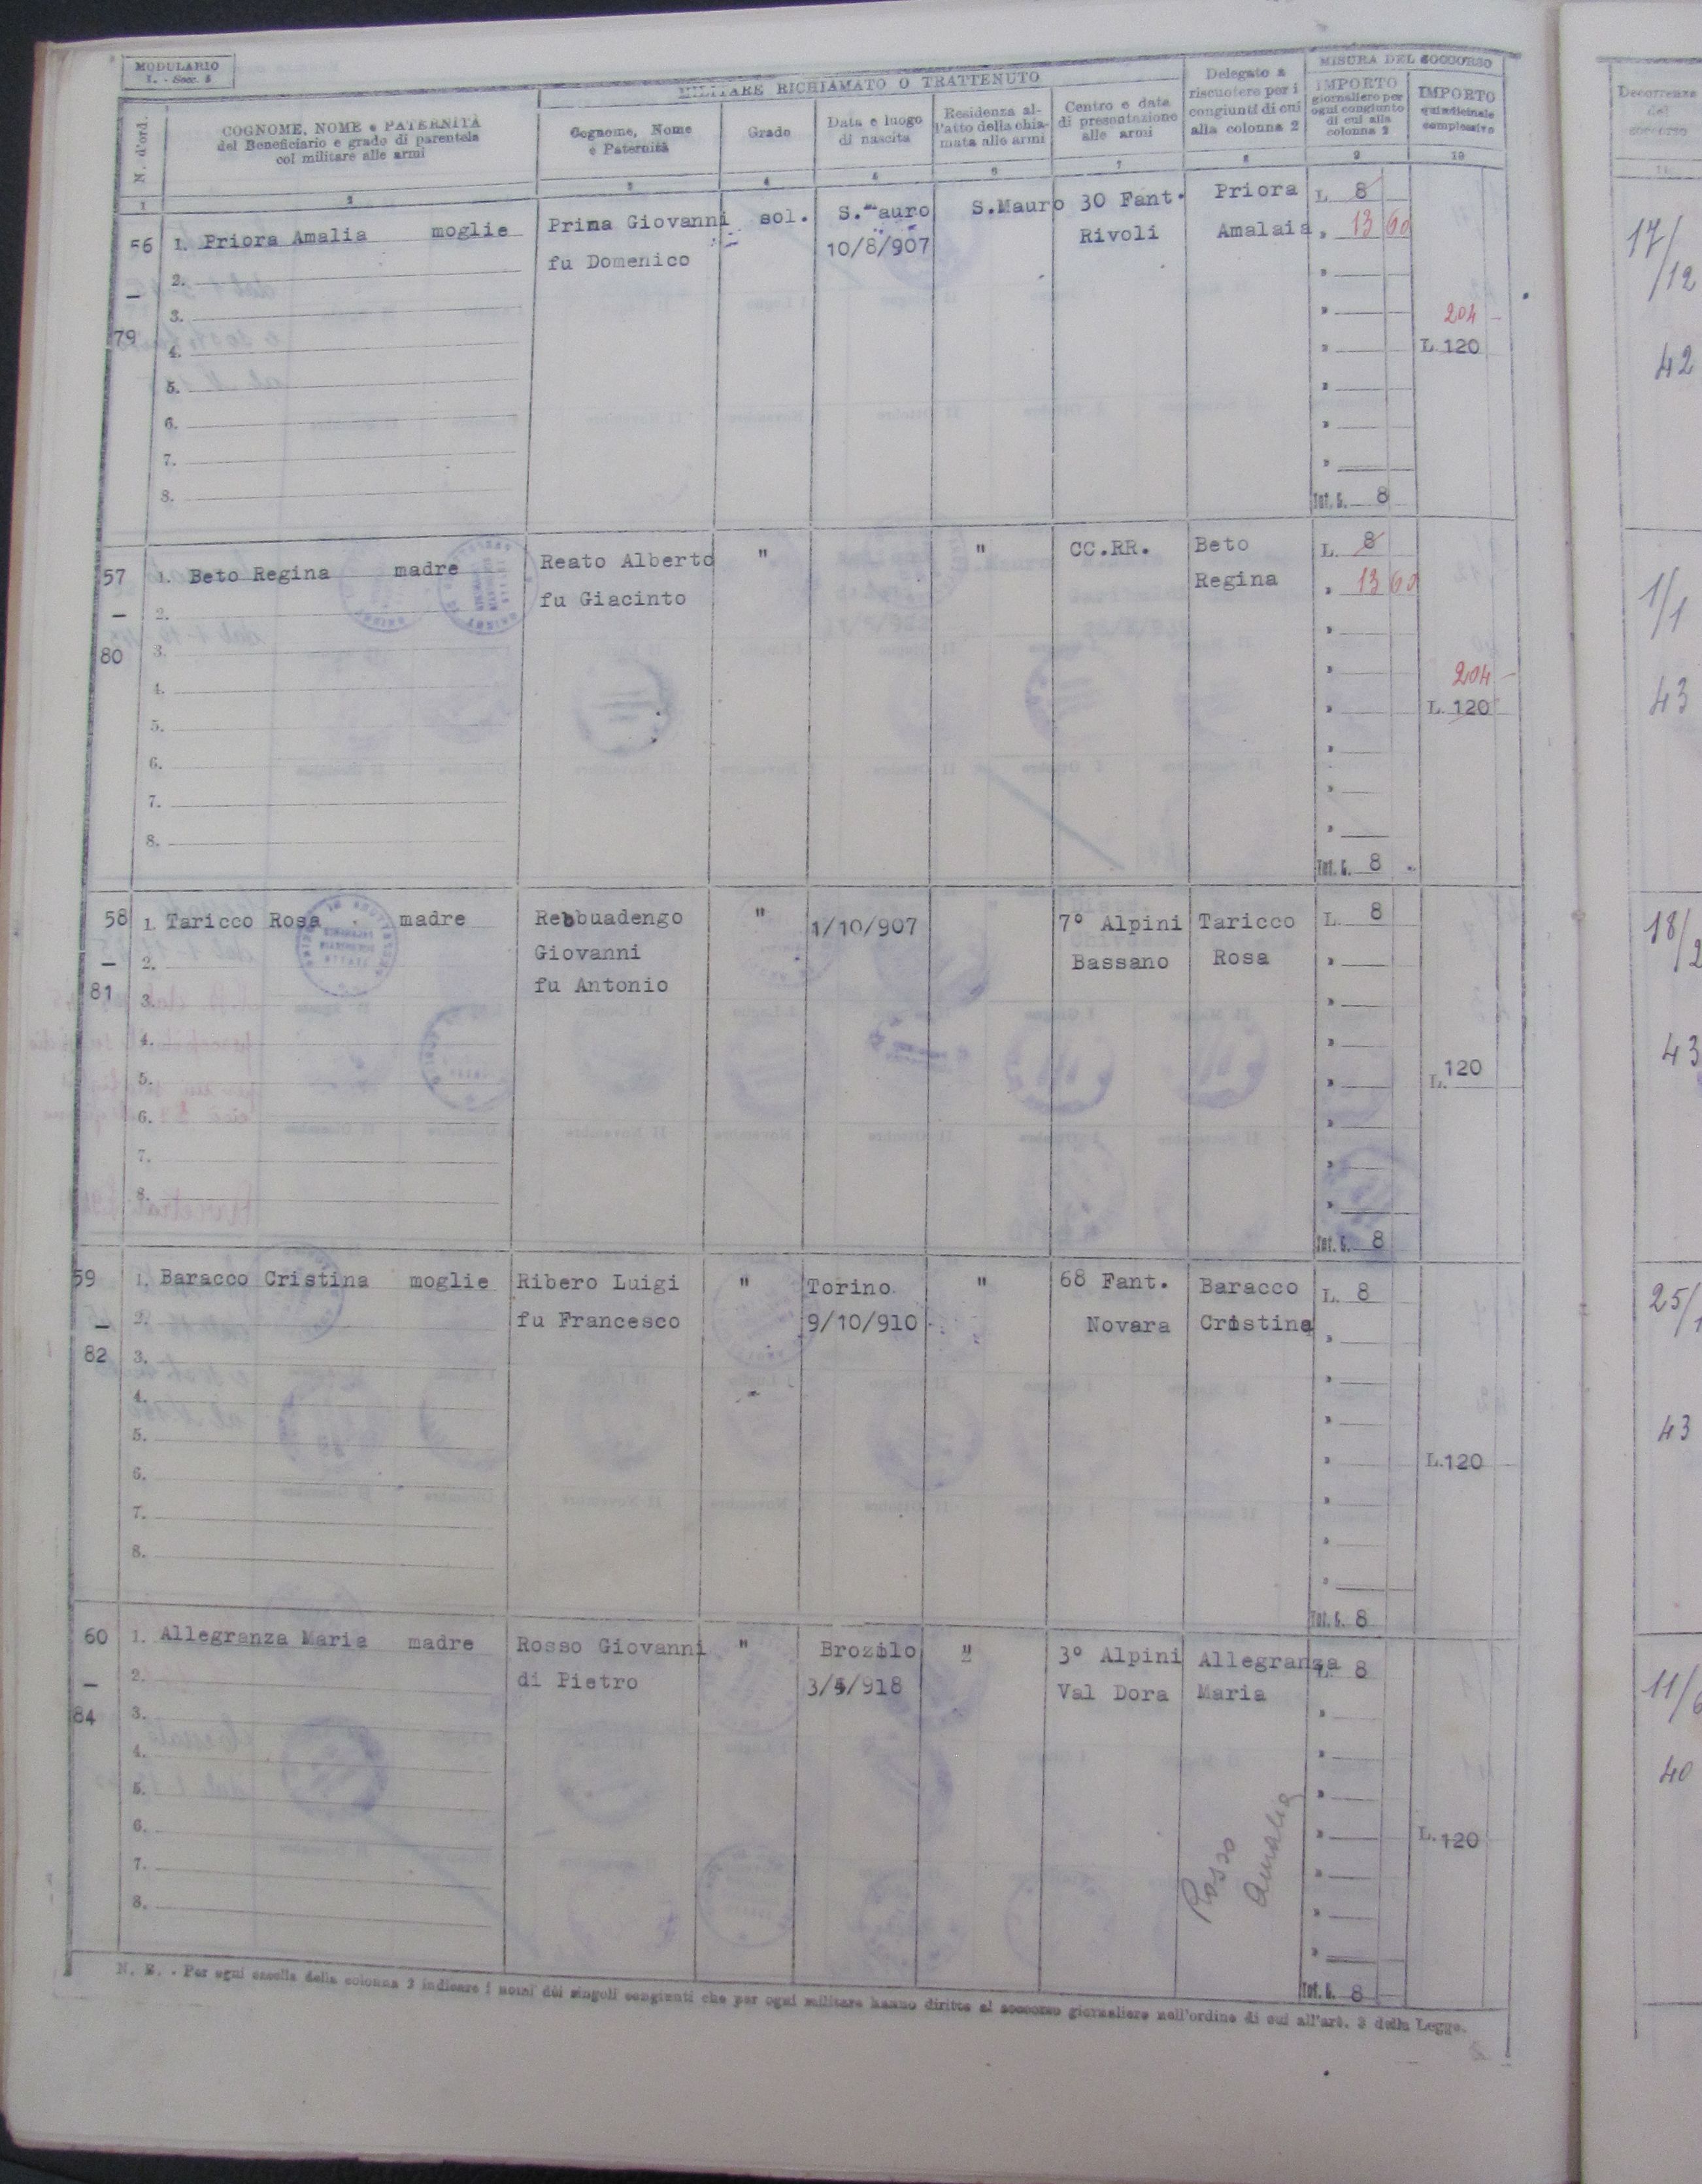 MODULARIO
I. - Socc. 5
MILITARE RICHIAMATO O TRATTENUTO
MISURA DEL SOCCORSO
N. d'ord.
COGNOME, NOME e PATERNITÀ
del Beneficiario e grado di parentela
col militare alle armi
Cognome, Nome
e Paternità
Grado
Data e luogo
di nascita
Residenza al-
l'atto della chia-
mata alle armi
Centro e data
di presentazione
alle armi
Delegato a
riscuotere per i
congiunti di cui
alla colonna 2
IMPORTO
giornaliero per
ogni congiunto
di cui alla
colonna 2
IMPORTO
quindicinale
complessivo
Decorrenza
del
soccorso
56 1. Priora Amalia moglie Prina Giovanni sol. S. auro S.Mauro 30 Fant. Priora L. 8
fu Domenico 10/8/907 Rivoli Amalaia " 13 60
17/
/12
—
2.
3. 204 -
79 4. L. 120
42
5.
6.
7.
8. Tot. G. 8
57 1. Beto Regina madre Reato Alberto " " CC.RR. Beto L. 8
fu Giacinto Regina " 13 60
1/1
—
2.
80 3.
4. 204 -
5. L. 120
43
6.
7.
8.
Tot. G. 8
58 1. Taricco Rosa madre Rebbuadengo " 1/10/907 7° Alpini Taricco L. 8
Giovanni Bassano Rosa
fu Antonio
18/
—
2.
81 3.
4.
43
5. L. 120
6.
7.
8.
Tot. G. 8
59 1. Baracco Cristina moglie Ribero Luigi " Torino " 68 Fant. Baracco L. 8
fu Francesco 9/10/910 Novara Cristina
25/
—
2.
82 3.
4.
43
5.
6. L. 120
7.
8.
Tot. G. 8
60 1. Allegranza Maria madre Rosso Giovanni " Brozilo " 3° Alpini Allegranza L. 8
di Pietro 3/4/918 Val Dora Maria
11/
—
2.
84 3.
4.
40
5.
6. L. 120
7.
8.
Rosso
Amalia
Tot. G. 8
N. B. - Per ogni casella della colonna 2 indicare i nomi dei singoli congiunti che per ogni militare hanno diritto al soccorso giornaliero nell'ordine di cui all'art. 3 della Legge.